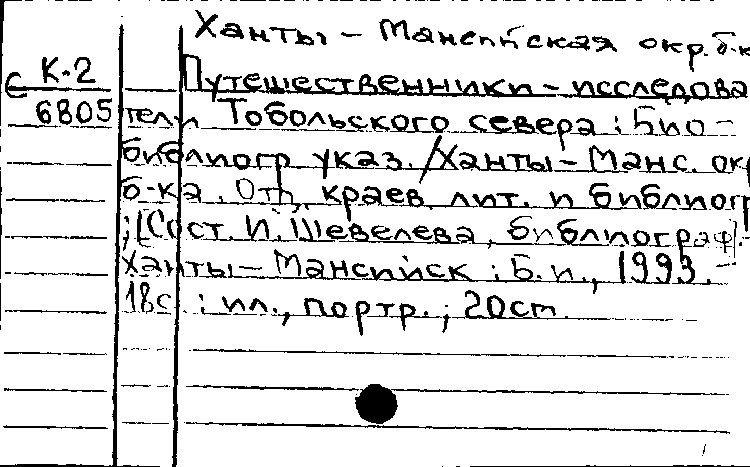 Ханты - Мансийская окр. б-к
К-2 Путешественники - исследова
С 6805 тели Тобольского севера : Био-
библиогр указ. / Ханты - Манс. окр
б-ка. Отд. краев. лит. и библиогр
; [Сост. И. Шевелева, библиограф]. -
Ханты - Мансийск : Б. и., 1993. -
18с. : ил., портр. ; 20 см.